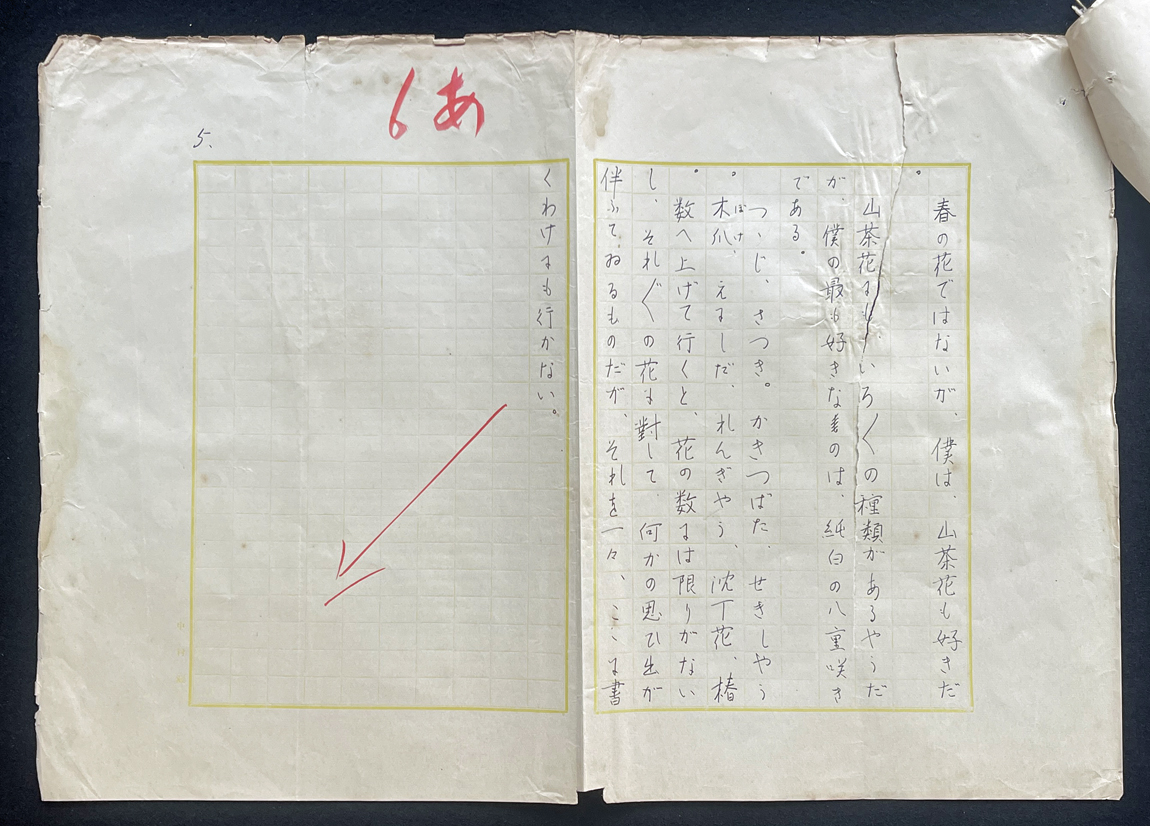 6 あ
5、
春の花ではないが、僕は、山茶花も好きだ
。
山茶花にも、いろ〱の種類があるやうだ
が、僕の最も好きなものは、純白の八重咲き
である。
つゝじ、さつき。かきつばた、せきしやう
ぼけ
。木瓜、えにしだ、れんぎやう、沈丁花、椿
。数へ上げて行くと、花の数には限りがない
し、それ〲の花に對して、何かの思ひ出が
伴ふてゐるものだが、それを一々、こゝに書
くわけにも行かない。